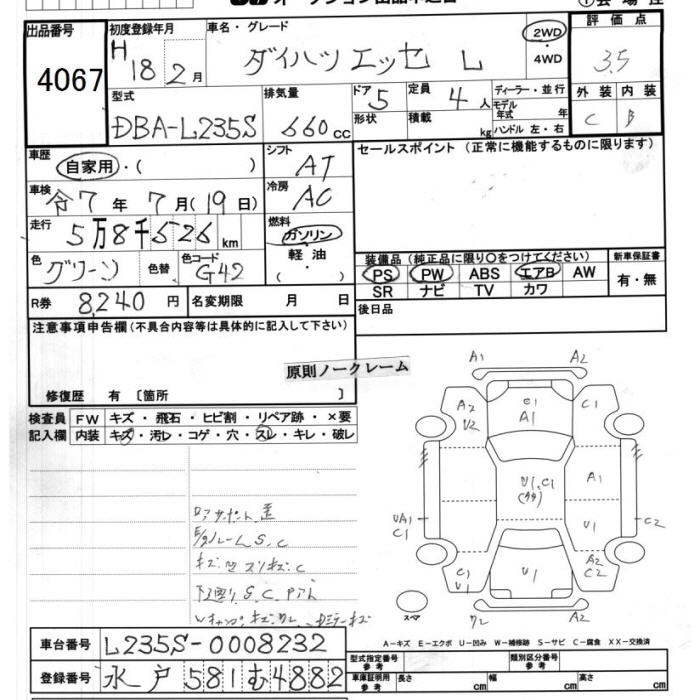 出品番号 初度登録年月 車名・グレード 2WD・4WD 評価点
4067 H18年2月 ダイハツ エッセ L 3.5
型式 排気量 ドア 5 定員 4人 ディーラー・並行 外装 内装
DBA-L235S 660cc 形状 積載 kg モデル年式 年 ハンドル 左・右 C B
車歴 自家用・( ) シフト AT セールスポイント (正常に機能するものに限ります)
車検 令7年7月(19日) 冷房 AC
走行 5万8千526km 燃料 ガソリン・軽油・( )
色 グリーン 色替 色コード G42
装備品 (純正品に限り〇をつけてください) 新車保証書
PS PW ABS エアB AW 有・無
SR ナビ TV カワ
R券 8,240円 名変期限 月 日 後日品
注意事項申告欄(不具合内容等は具体的に記入して下さい)
原則ノークレーム
修復歴 有 〔箇所 〕
検査員 FW キズ・飛石・ヒビ割・リペア跡・×要
記入欄 内装 キズ・汚レ・コゲ・穴・スレ・キレ・破レ
A1 A2
A2 U2 C1 A1 C1
U1.C1 A1
UA1 C1 U1 C2
C1 U1 U1 A2 C2
スペア A2
A-キズ E-エクボ U-凹み W-補修跡 S-サビ C-腐食 XX-交換済
車台番号 L235S-0008232
登録番号 水戸 581 む 4882
型式指定番号 参考 類別区分番号 参考
車庫証明用 参考 長さ cm 幅 cm 高さ cm